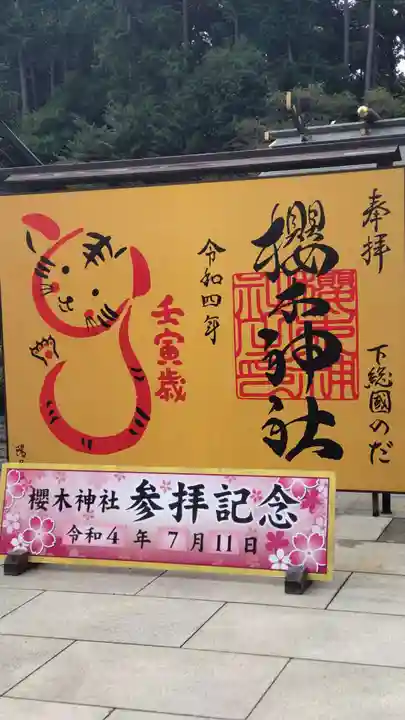 奉拝
下総國のだ
櫻木神社
令和四年
壬寅歳
櫻木神社 参拝記念
令和4年 7月11日